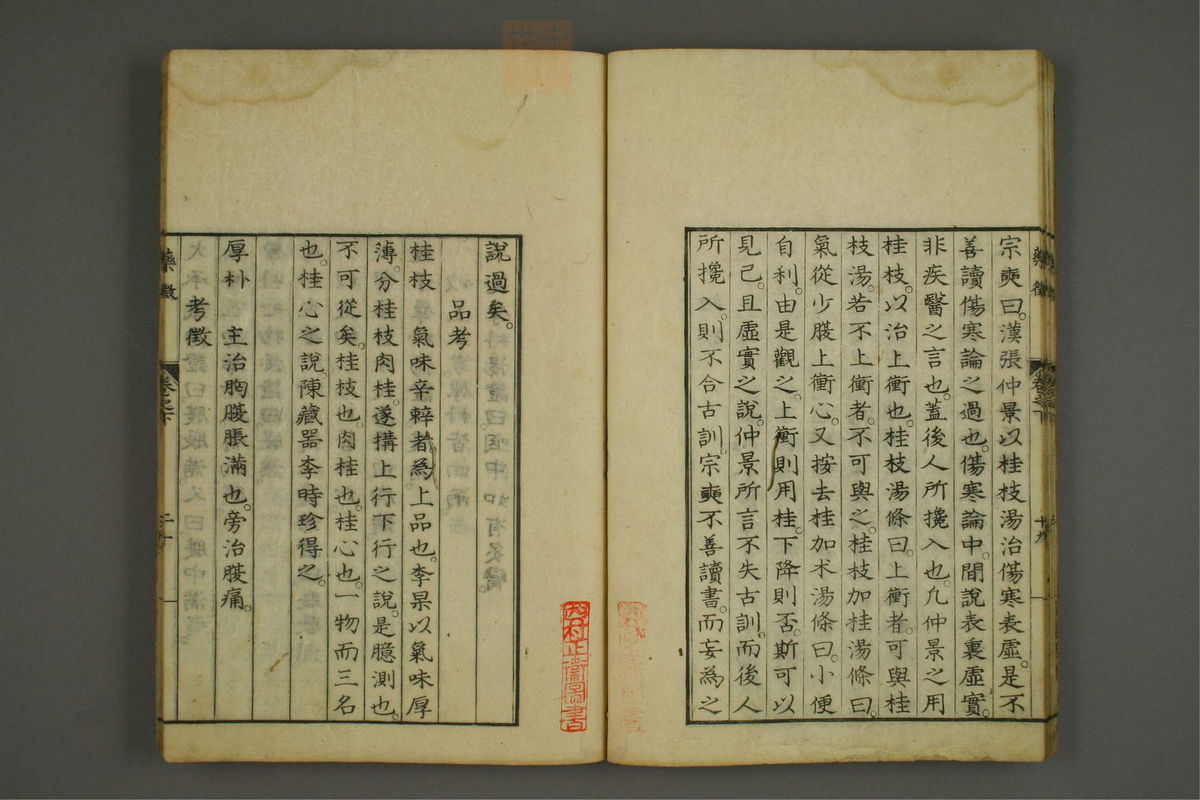 宗奭曰。漢張仲景以桂枝湯治傷寒表虛。是不
善讀傷寒論之過也。傷寒論中。間說表裏虛實。
非疾醫之言也。蓋後人所攙入也。凢仲景之用
桂枝。以治上衝也。桂枝湯條曰。上衝者。可與桂
枝湯。若不上衝者。不可與之。桂枝加桂湯條曰。
氣從少腹上衝心。又按去桂加朮湯條曰。小便
自利。由是觀之。上衝則用桂。下降則否。斯可以
見已。且虛實之說。仲景所言不失古訓。而後人
所攙入。則不合古訓。宗奭不善讀書。而妄為之
藥徵
卷之下
十九
說過矣。
品考
桂枝 氣味辛辣者。為上品也。李杲以氣味厚
薄。分桂枝肉桂。遂搆上行下行之說。是臆測也。
不可從矣。桂枝也。肉桂也。桂心也。一物而三名
也。桂心之說。陳藏器李時珍得之。
厚朴 主治胸腹脹滿也。旁治腹痛。
考徵
藥徵
卷之下
二十